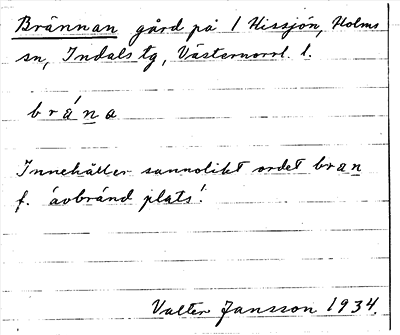 Brännan gård på 1 Hissjön, Holms
sn, Indals tg, Västernorrl. l.
brá̱na
Innehåller sannolikt ordet bran
f. 'avbränd plats'.
Valter Jansson 1934.